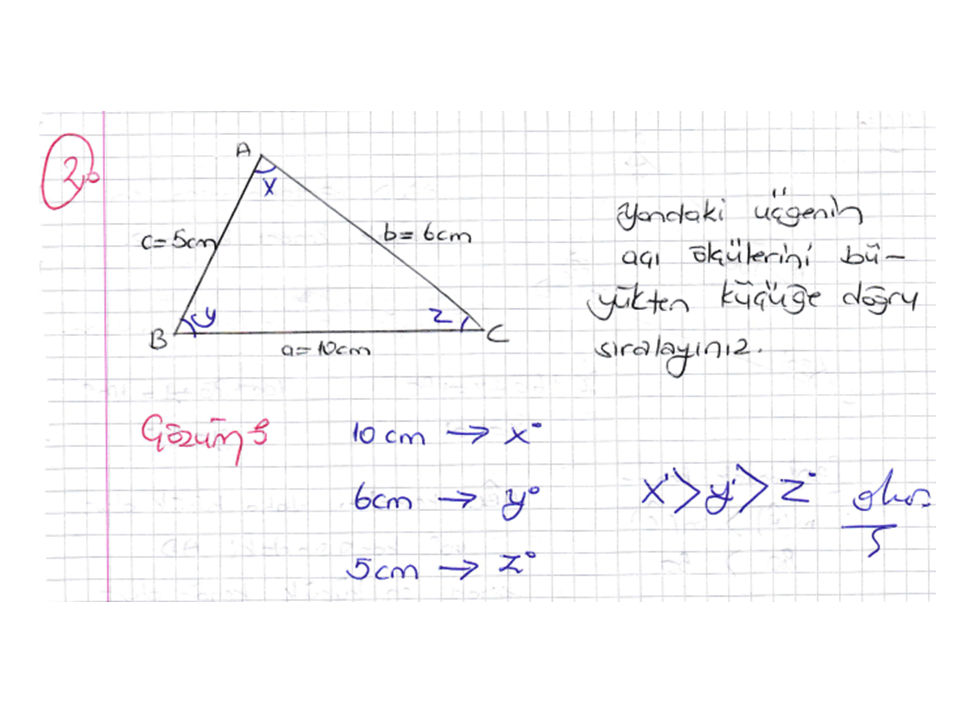 2.
A
x
c=5cm
b=6cm
B
y
z
C
a=10cm
yandaki üçgenin
açı ölçülerini bü-
yükten küçüğe doğru
sıralayınız.
Çözüm:
10 cm → x°
6cm → y°
5cm → z°
x°>y°>z° olur.